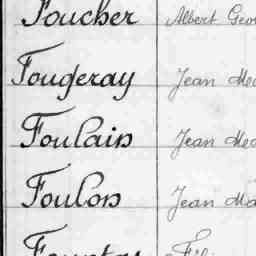 Foucher Albert Geo
Fougeray Jean Me
Foulain Jean Me
Foulon Jean Ma